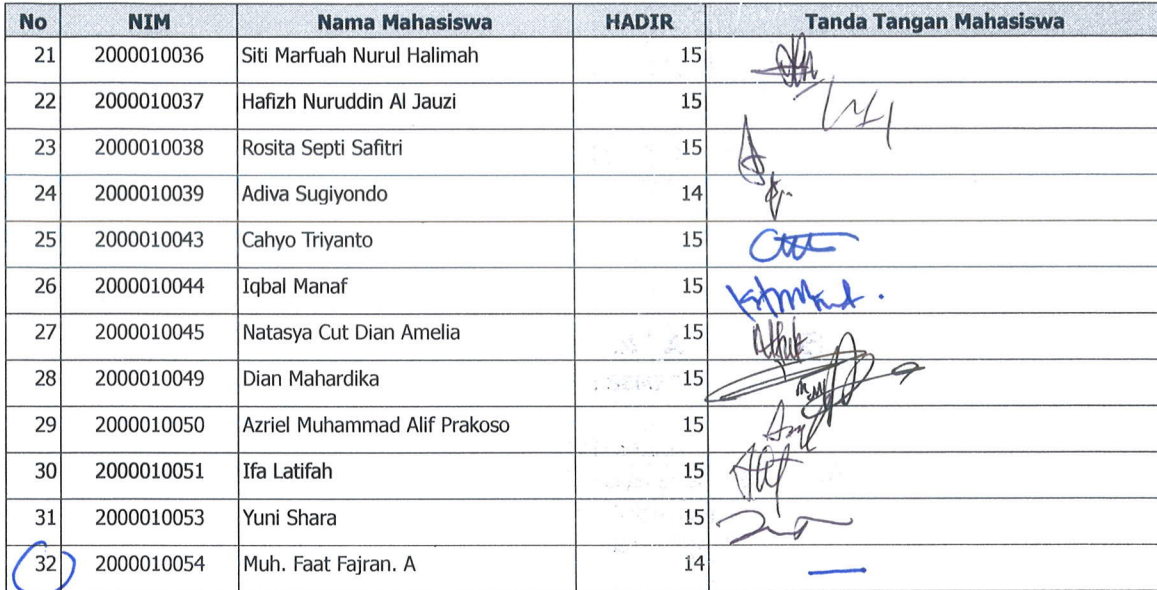 No NIM Nama Mahasiswa HADIR Tanda Tangan Mahasiswa
21 2000010036 Siti Marfuah Nurul Halimah 15
22 2000010037 Hafizh Nuruddin Al Jauzi 15
23 2000010038 Rosita Septi Safitri 15
24 2000010039 Adiva Sugiyondo 14
25 2000010043 Cahyo Triyanto 15
26 2000010044 Iqbal Manaf 15
27 2000010045 Natasya Cut Dian Amelia 15
28 2000010049 Dian Mahardika 15
29 2000010050 Azriel Muhammad Alif Prakoso 15
30 2000010051 Ifa Latifah 15
31 2000010053 Yuni Shara 15
32 2000010054 Muh. Faat Fajran. A 14